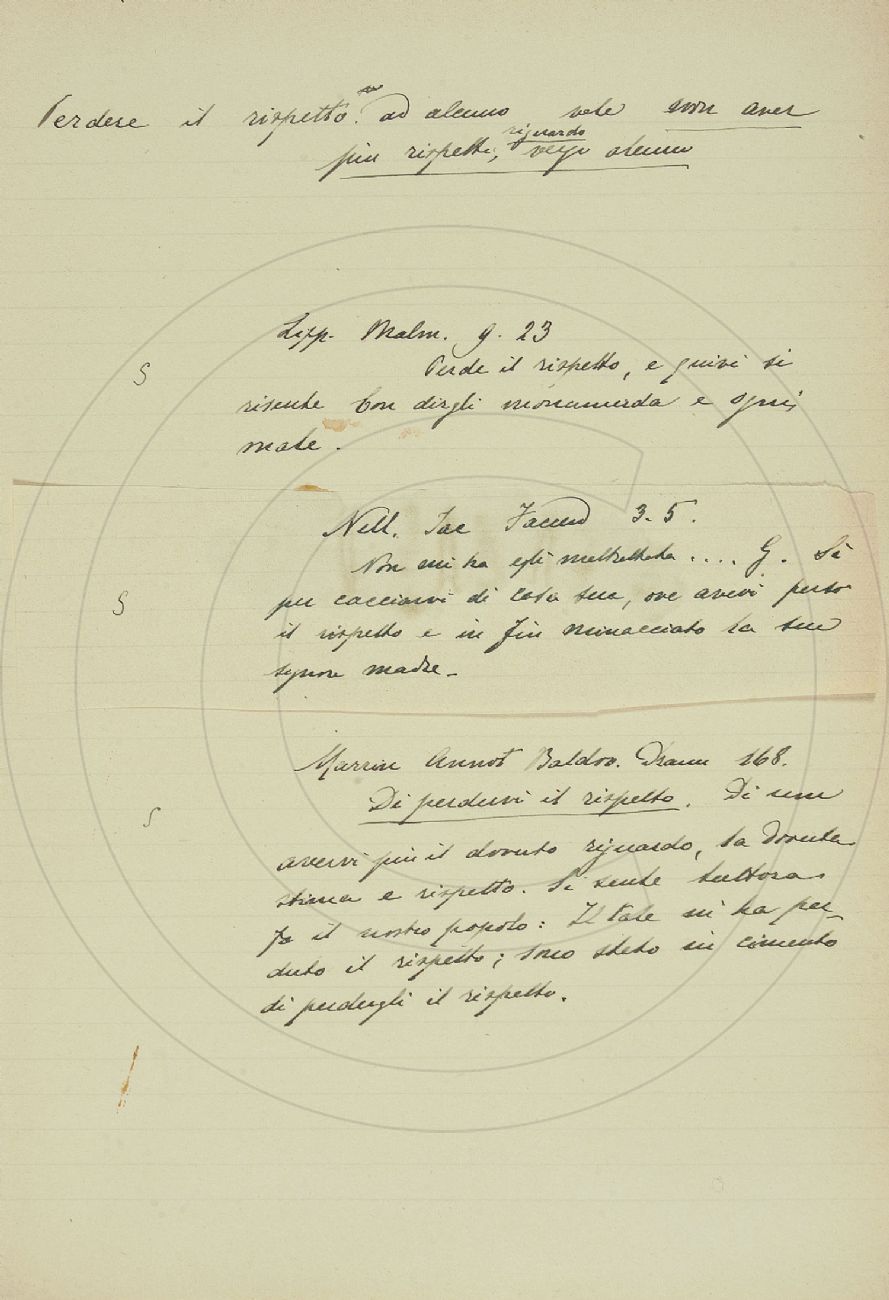 Perdere il rispetto ad alcuno vale non aver
più rispetto, riguardo verso alcuno
Lipp. Malm. 9. 23
Perde il rispetto, e quivi si
risente Con dirgli monnamerda e ogni
male.
Nell. Iac. 3. 5.
Non mi ha egli maltrattata .... G. Sì
per cacciarvi di casa sua, ove avevi perso
il rispetto e in fin minacciato la sua
signora madre.
S
S
S
Marrin Annot Baldov. 168.
Di perdervi il rispetto. Di non
avervi più il dovuto riguardo, la dovuta
stima e rispetto. Si sente tuttora
fra il nostro popolo: Il Tale mi ha per-
duto il rispetto; sono stato in cimento
di perdergli il rispetto.